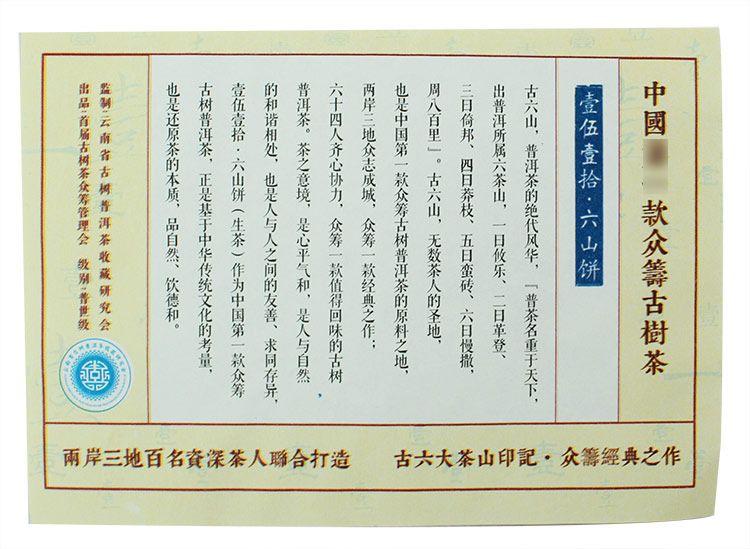 中國
款众籌古樹茶
壹伍壹拾·六山饼
古六山，普洱茶的绝代风华，『普茶名重于天下，
出普洱所属六茶山，一曰攸乐、二曰革登、
三曰倚邦、四曰莽枝、五曰蛮砖、六曰慢撒，
周八百里』。古六山，无数茶人的圣地，
也是中国第一款众筹古树普洱茶的原料之地，
两岸三地众志成城，众筹一款经典之作；
六十四人齐心协力，众筹一款值得回味的古树
普洱茶。茶之意境，是心平气和，是人与自然
的和谐相处，也是人与人之间的友善、求同存异，
壹伍壹拾·六山饼（生茶）作为中国第一款众筹
古树普洱茶，正是基于中华传统文化的考量，
也是还原茶的本质，品自然、饮德和。
監制：云南省古树普洱茶收藏研究会
出品：首届古树茶众筹管理会 级别：普世级
兩岸三地百名資深茶人聯合打造
古六大茶山印記·众籌經典之作